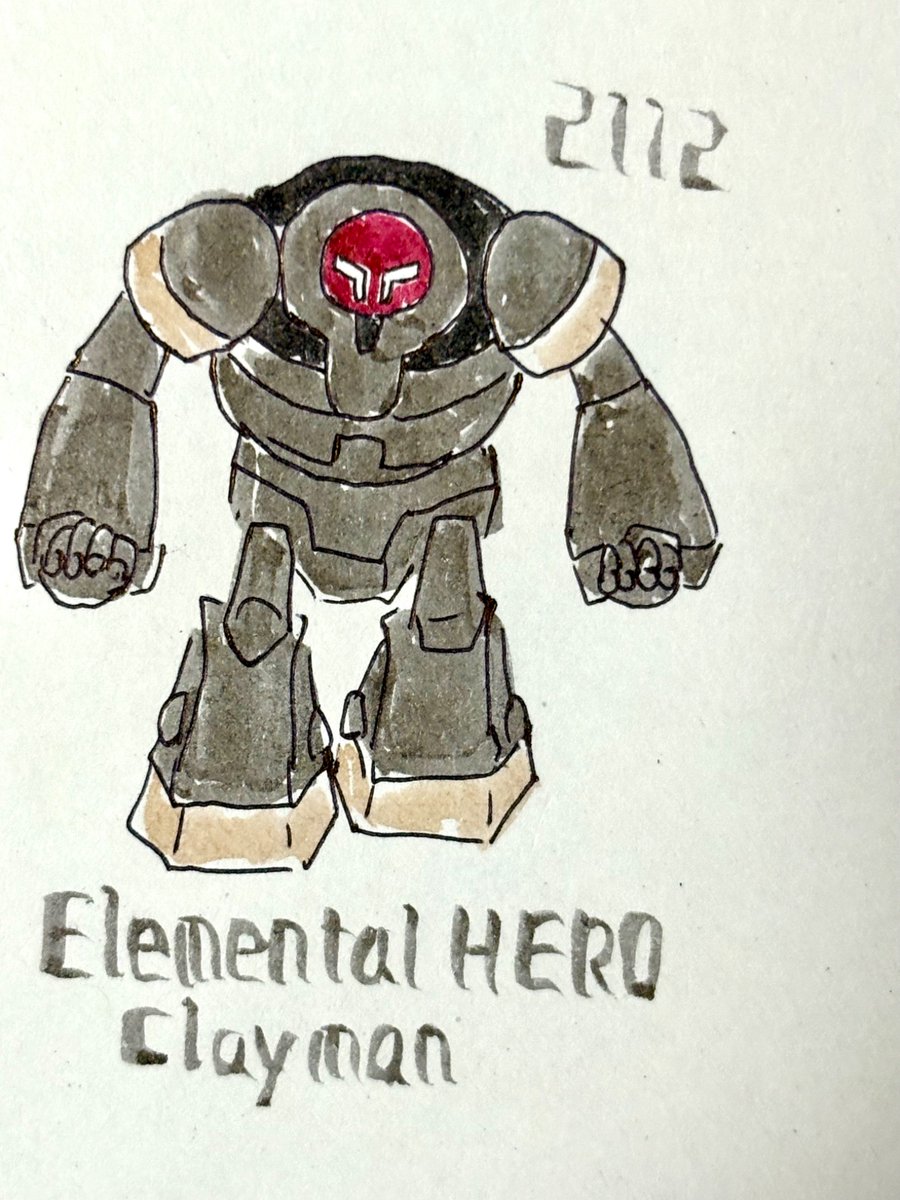 2112
Elemental HERO
Clayman